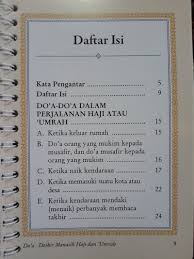 Daftar Isi
Kata Pengantar 5.
Daftar Isi 9.
DO'A-DO'A DALAM
PERJALANAN HAJI ATAU
'UMRAH 15
A. Ketika keluar rumah 15.
B. Do'a orang yang mukim kepada
musafir, dan do'a musafir kepada
orang yang mukim 16.
C. Ketika naik kendaraan 17
D. Ketika memasuki suatu kota atau
desa 22
E. Ketika kendaraan mendaki
(menaik) perbanyak membaca
takbir 24
Do'a - Dzikir Manasik Haji dan 'Umrah 9